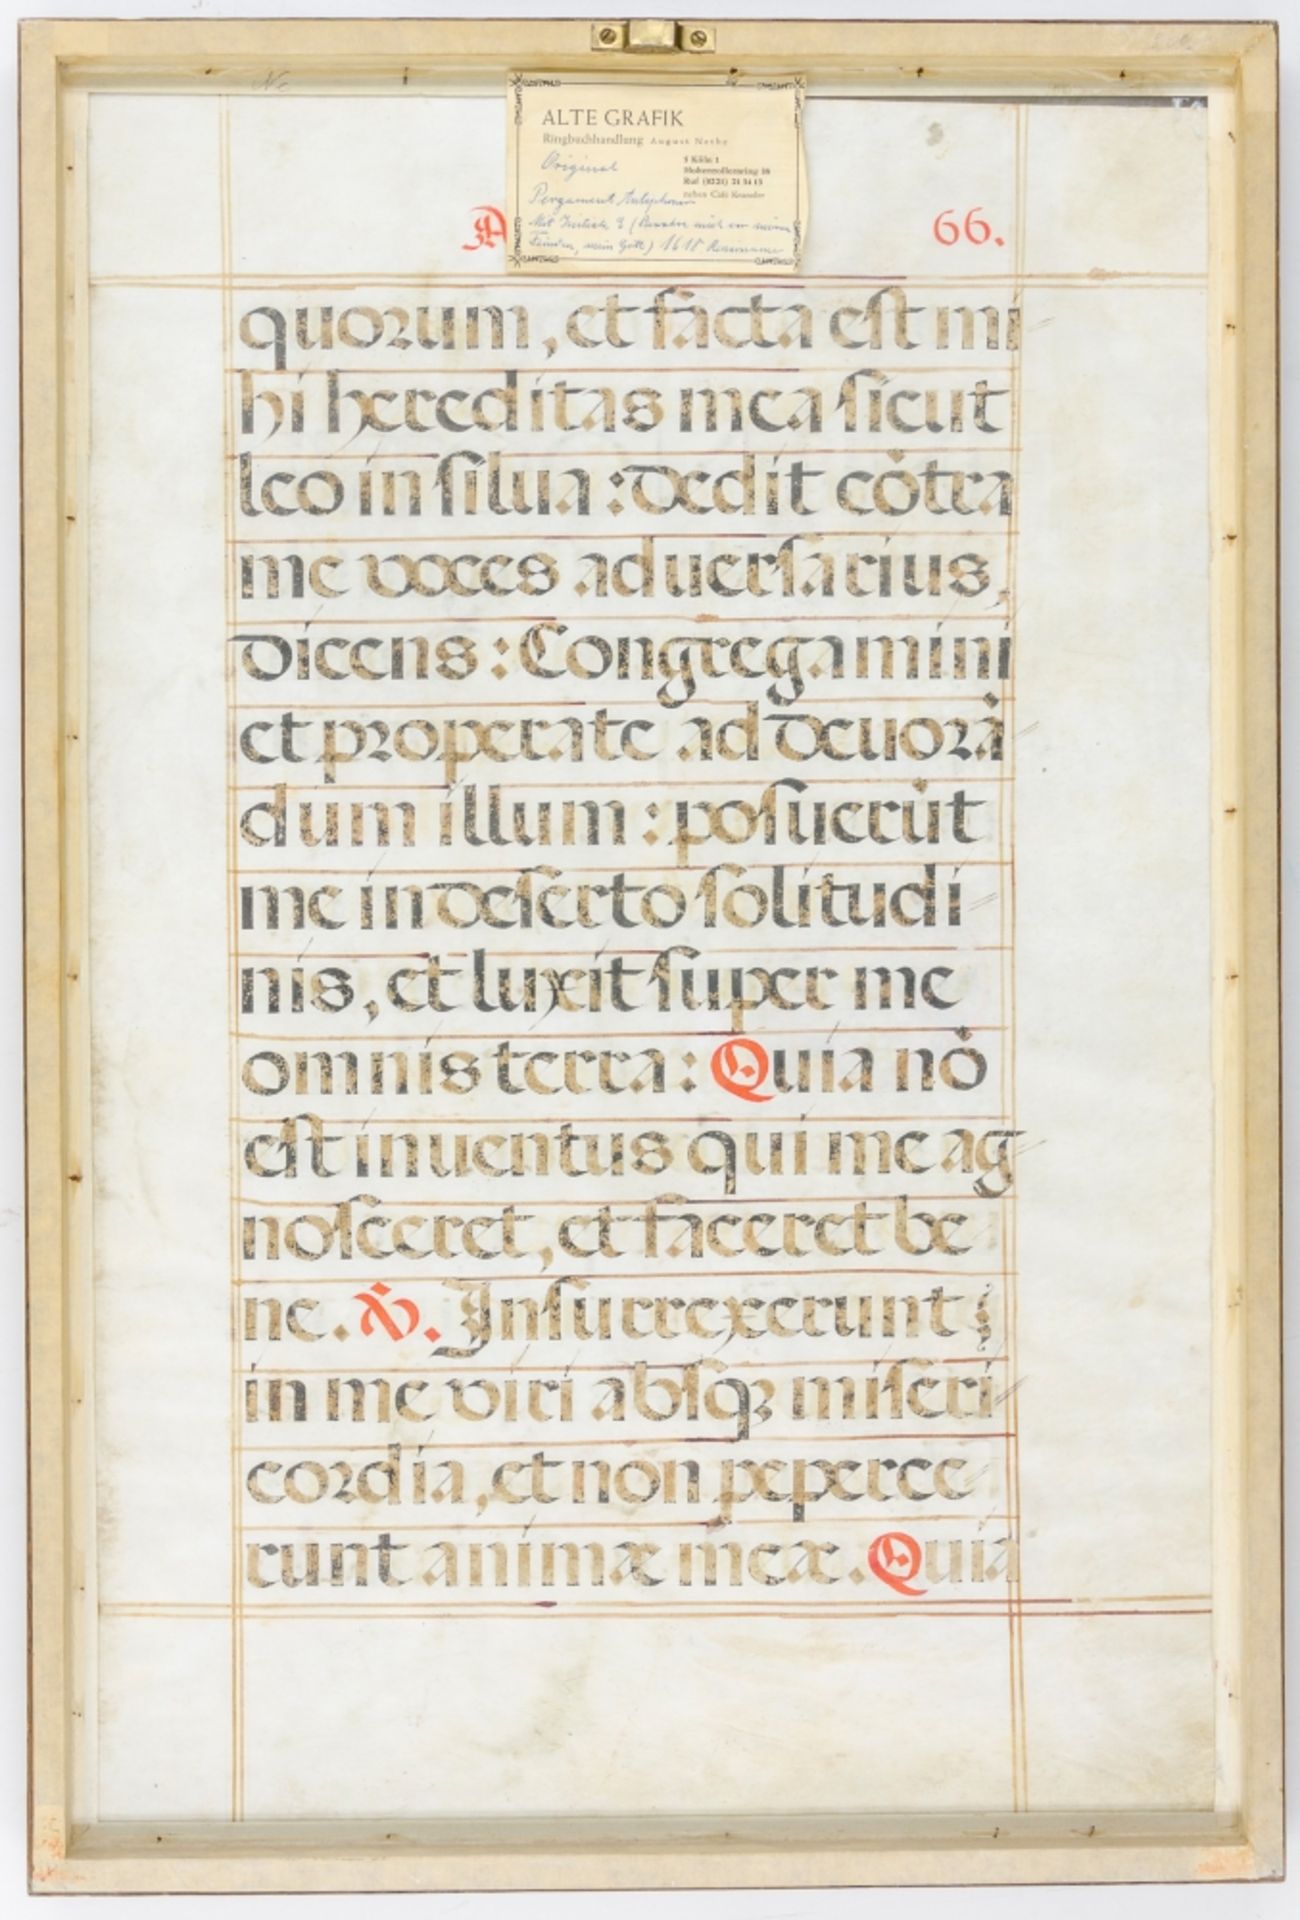 ALTE GRAFIK
Ringbuchhandlung August Nethe
Original
5 Köln 1
Hohenzollernring 16
Ruf (0221) 21 34 13
neben Café
Pergament
Mit Initiale
Feinden, mein Gott) 1618 Renaissance
A
66.
quorum, et facta est mi
hi hereditas mea sicut
leo in silua : dedit cōtra
me voces aduersarius,
dicens : Congregamini
et properate ad deuorā
dum illum : posuerūt
me in deserto solitudi
nis, et luxit super me
omnis terra : Quia nō
est inuentus qui me ag
nosceret, et faceret be
ne. ℣. Insurrexerunt
in me viri absqꝫ miseri
cordia, et non peperce
runt animæ meæ. Quia